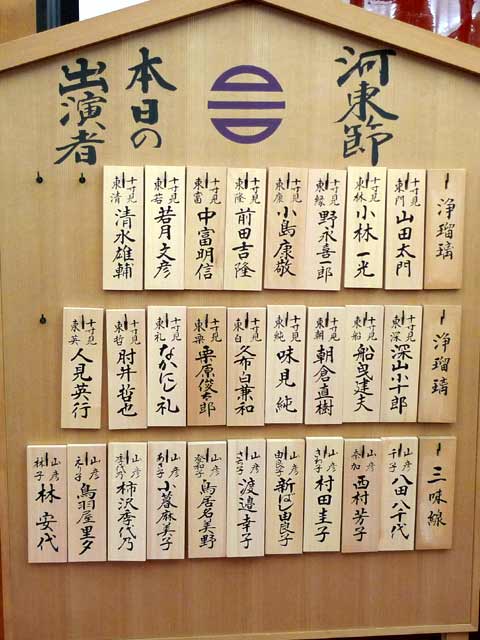 河東節
本日の
出演者
浄瑠璃
十寸見 東門 山田太門
十寸見 東林 小林一光
十寸見 東縁 野永喜一郎
十寸見 東康 小島康敬
十寸見 東隆 前田吉隆
十寸見 東富 中富明信
十寸見 東若 若月文彦
十寸見 東清 清水雄輔
浄瑠璃
十寸見 東深 深山小十郎
十寸見 東船 船曳建夫
十寸見 東朝 朝倉直樹
十寸見 東純 味見純
十寸見 東白 久布白兼和
十寸見 東栗 栗原俊太郎
十寸見 東礼 なかにし礼
十寸見 東哲 肘井哲也
十寸見 東英 人見英行
三味線
山彦 千子 八田八千代
山彦 奈加 西村芳子
山彦 さわ子 村田圭子
山彦 由良子 新はし由良子
山彦 さち子 渡邉幸子
山彦 登和子 鳥居名美野
山彦 あき子 小暮麻美子
山彦 季代乃 柿沢季代乃
山彦 ゑ子 鳥羽屋里夕
山彦 林子 林安代